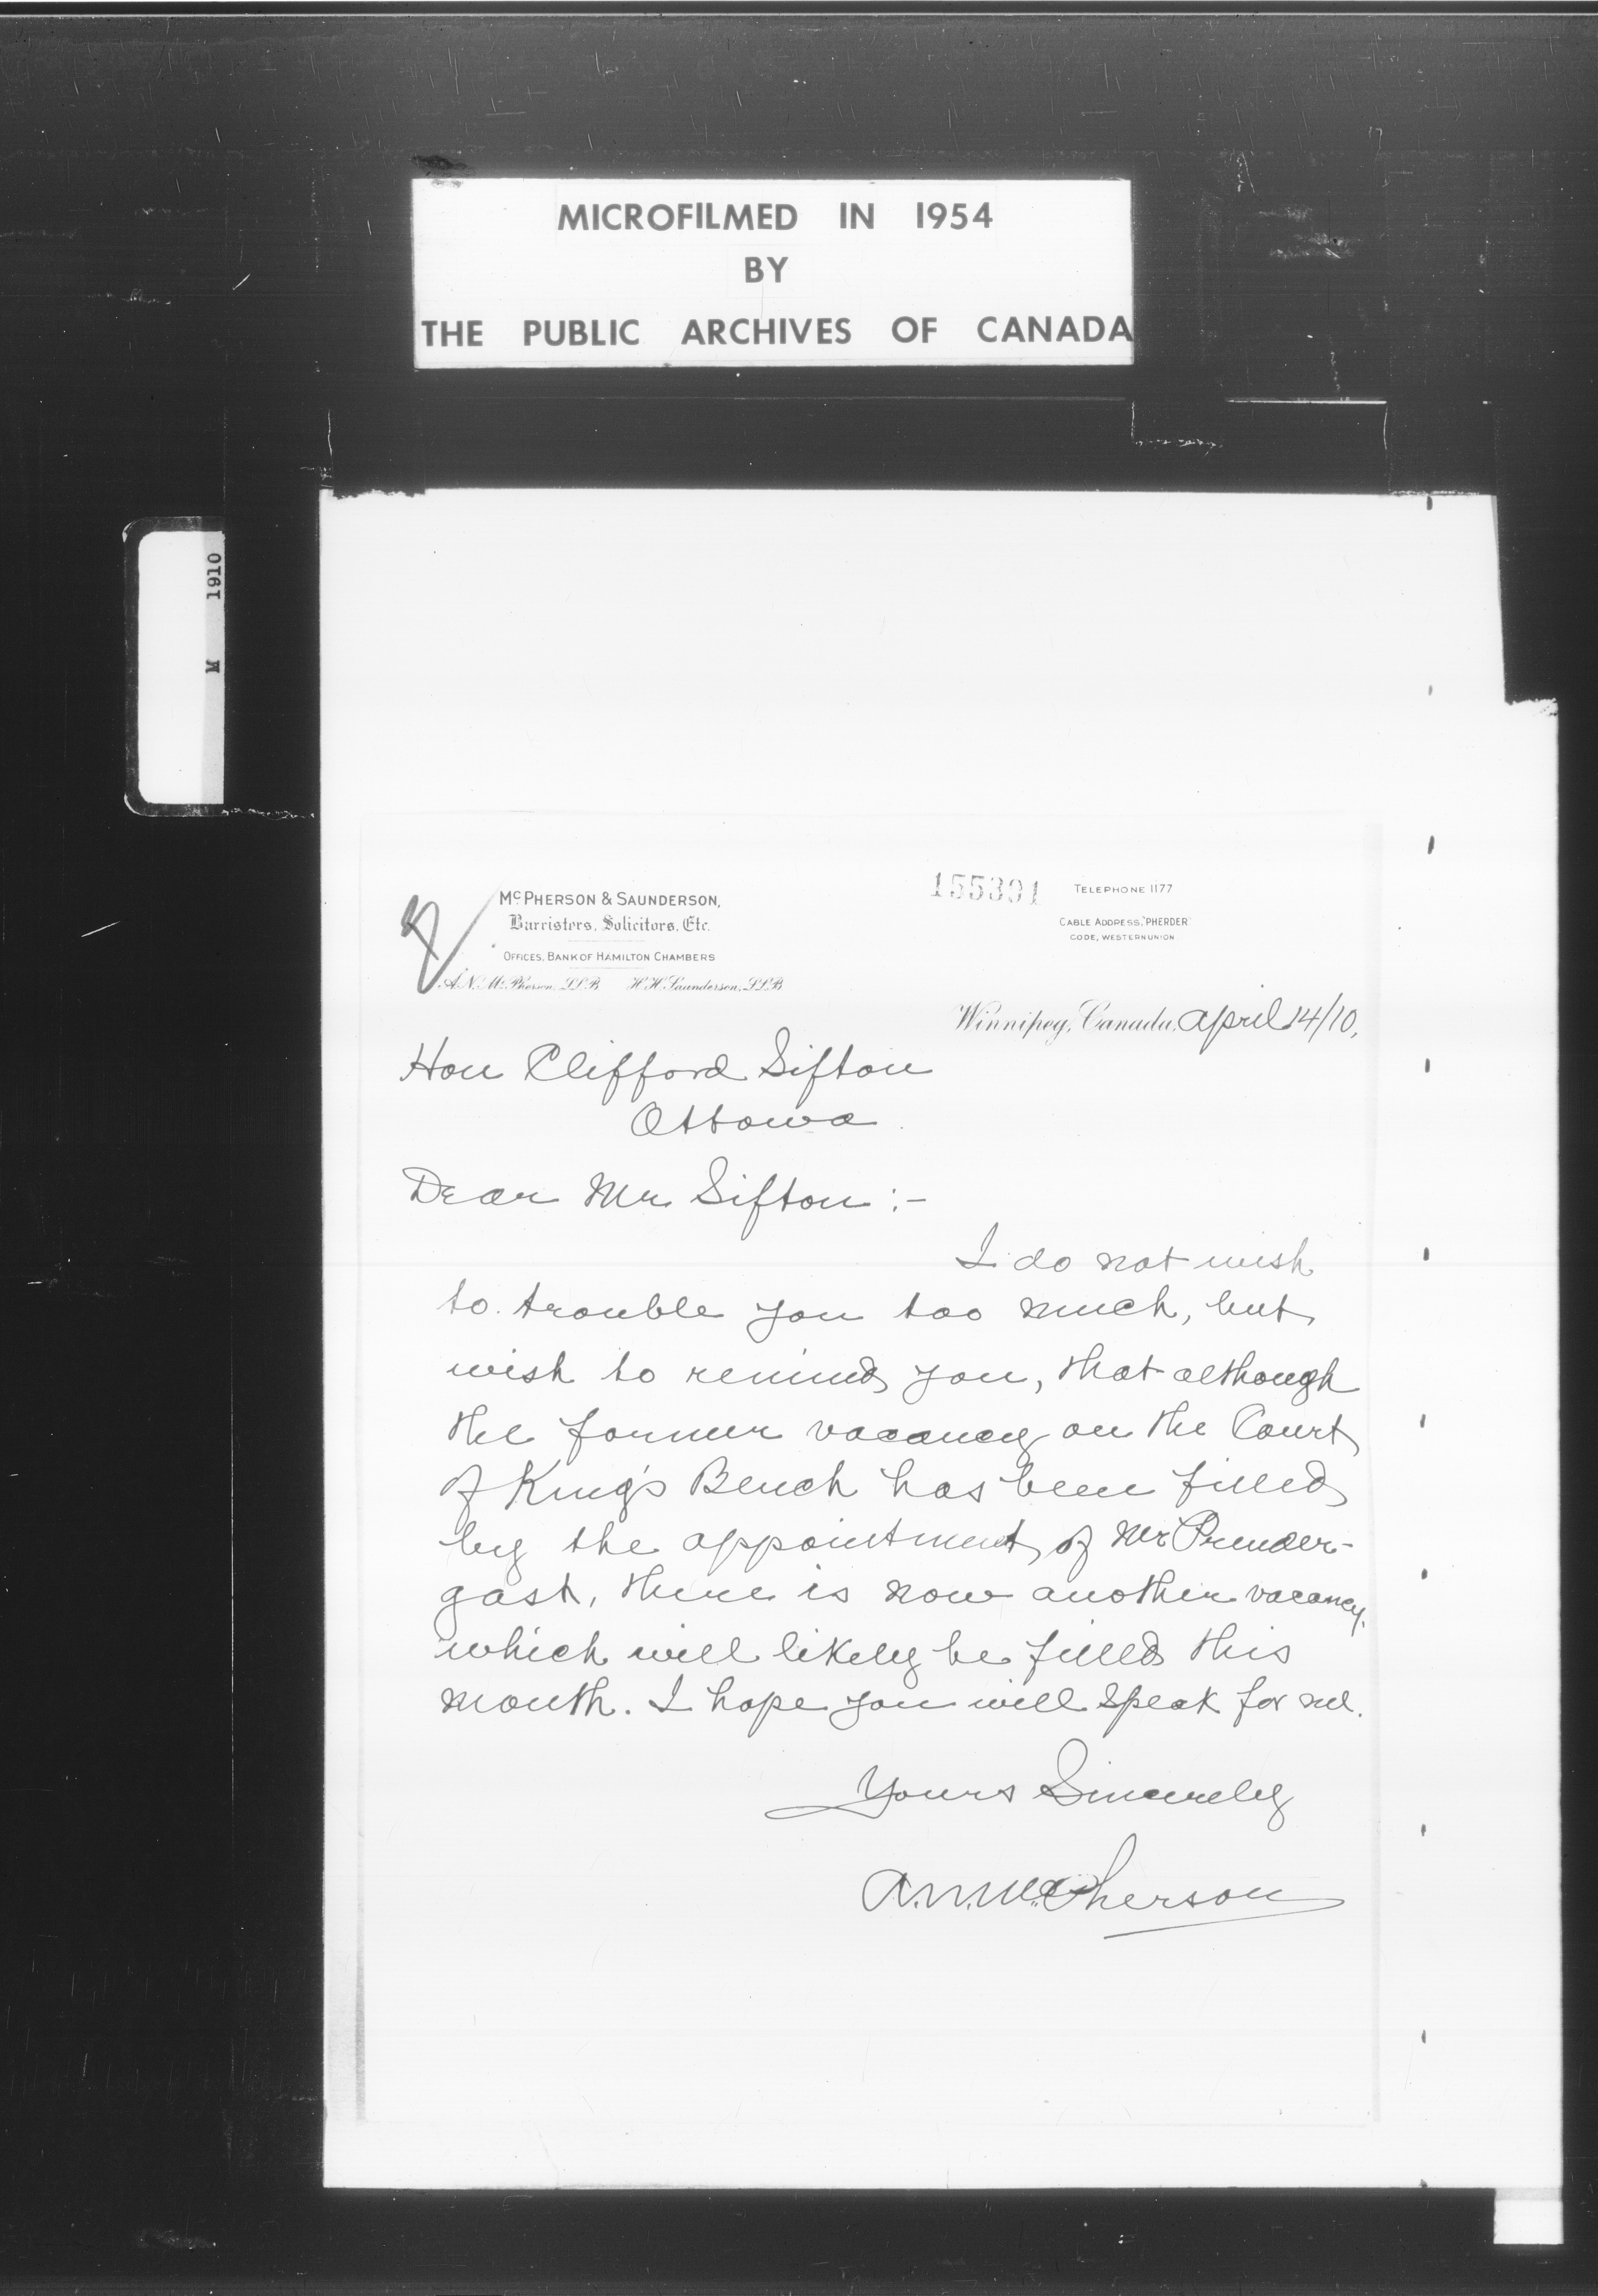 MICROFILMED IN 1954
BY
THE PUBLIC ARCHIVES OF CANADA
M 1910
155391
McPHERSON & SAUNDERSON,
Barristers, Solicitors, Etc.
OFFICES, BANK OF HAMILTON CHAMBERS
A.N. McPherson, LLB. H.H. Saunderson, LLB
TELEPHONE 1177
CABLE ADDRESS, "PHERDER"
CODE, WESTERN UNION
Winnipeg, Canada, April 14/10,
Hon Clifford Sifton
Ottawa
Dear Mr Sifton :-
I do not wish
to trouble you too much, but
wish to remind you, that although
the former vacancy on the Court
of King's Bench has been filled
by the appointment of Mr Prender-
gast, there is now another vacancy.
which will likely be filled this
month. I hope you will speak for me.
Yours Sincerely
A.N. McPherson